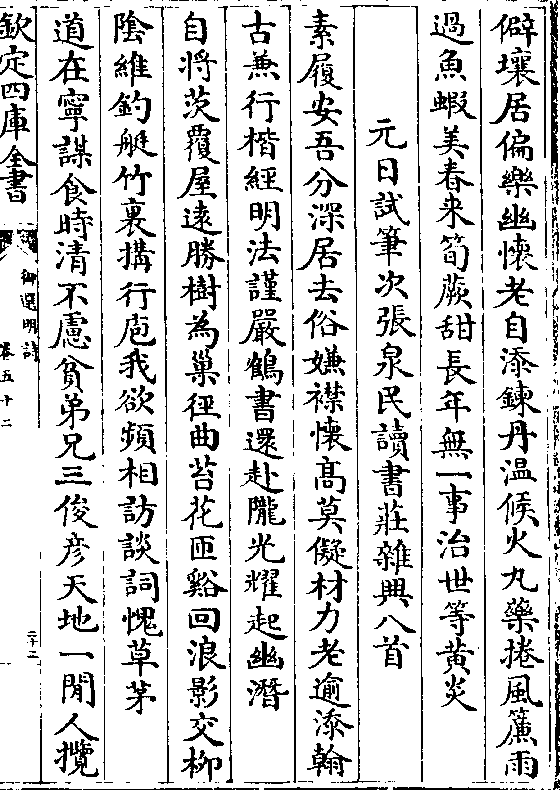 僻壤居偏樂幽懷老自添鍊丹温候火丸藥捲風簾雨
過魚蝦美春来筍蕨甜長年無一事治世等黄炎
元日試筆次張泉民讀書莊雜興八首
素履安吾分深居去俗嫌襟懷髙莫儗材力老逾添翰
古兼行楷經明法謹嚴鶴書還赴隴光耀起幽潛
自將茨覆屋逺勝樹為巢徑曲苔花匝谿回浪影交柳
陰維釣艇竹裏搆行庖我欲頻相訪談詞愧草茅
道在寧謀食時清不慮貧弟兄三俊彦天地一閒人攬
欽定四庫全書
御選明詩
卷五十二
二十三